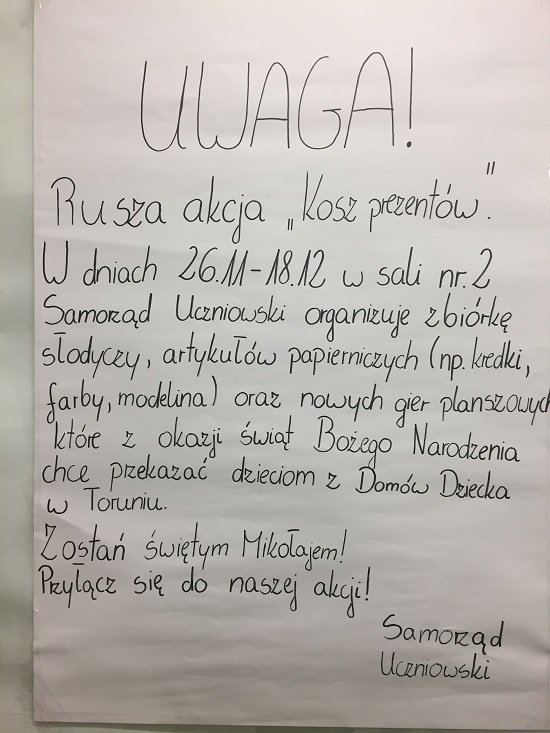 UWAGA!
Rusza akcja „Kosz prezentów".
W dniach 26.11-18.12 w sali nr.2
Samorząd Uczniowski organizuje zbiórkę
słodyczy, artykułów papierniczych (np. kredki,
farby, modelina) oraz nowych gier planszowych
które z okazji świąt Bożego Narodzenia
chce przekazać dzieciom z Domów Dziecka
w Toruniu.
Zostań świętym Mikołajem!
Przyłącz się do naszej akcji!
Samorząd
Uczniowski